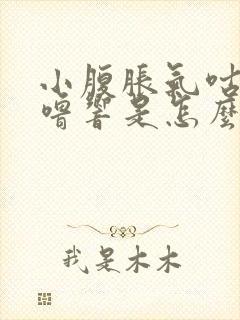 小腹脹氣咕
嚕響是怎麼
我是木木